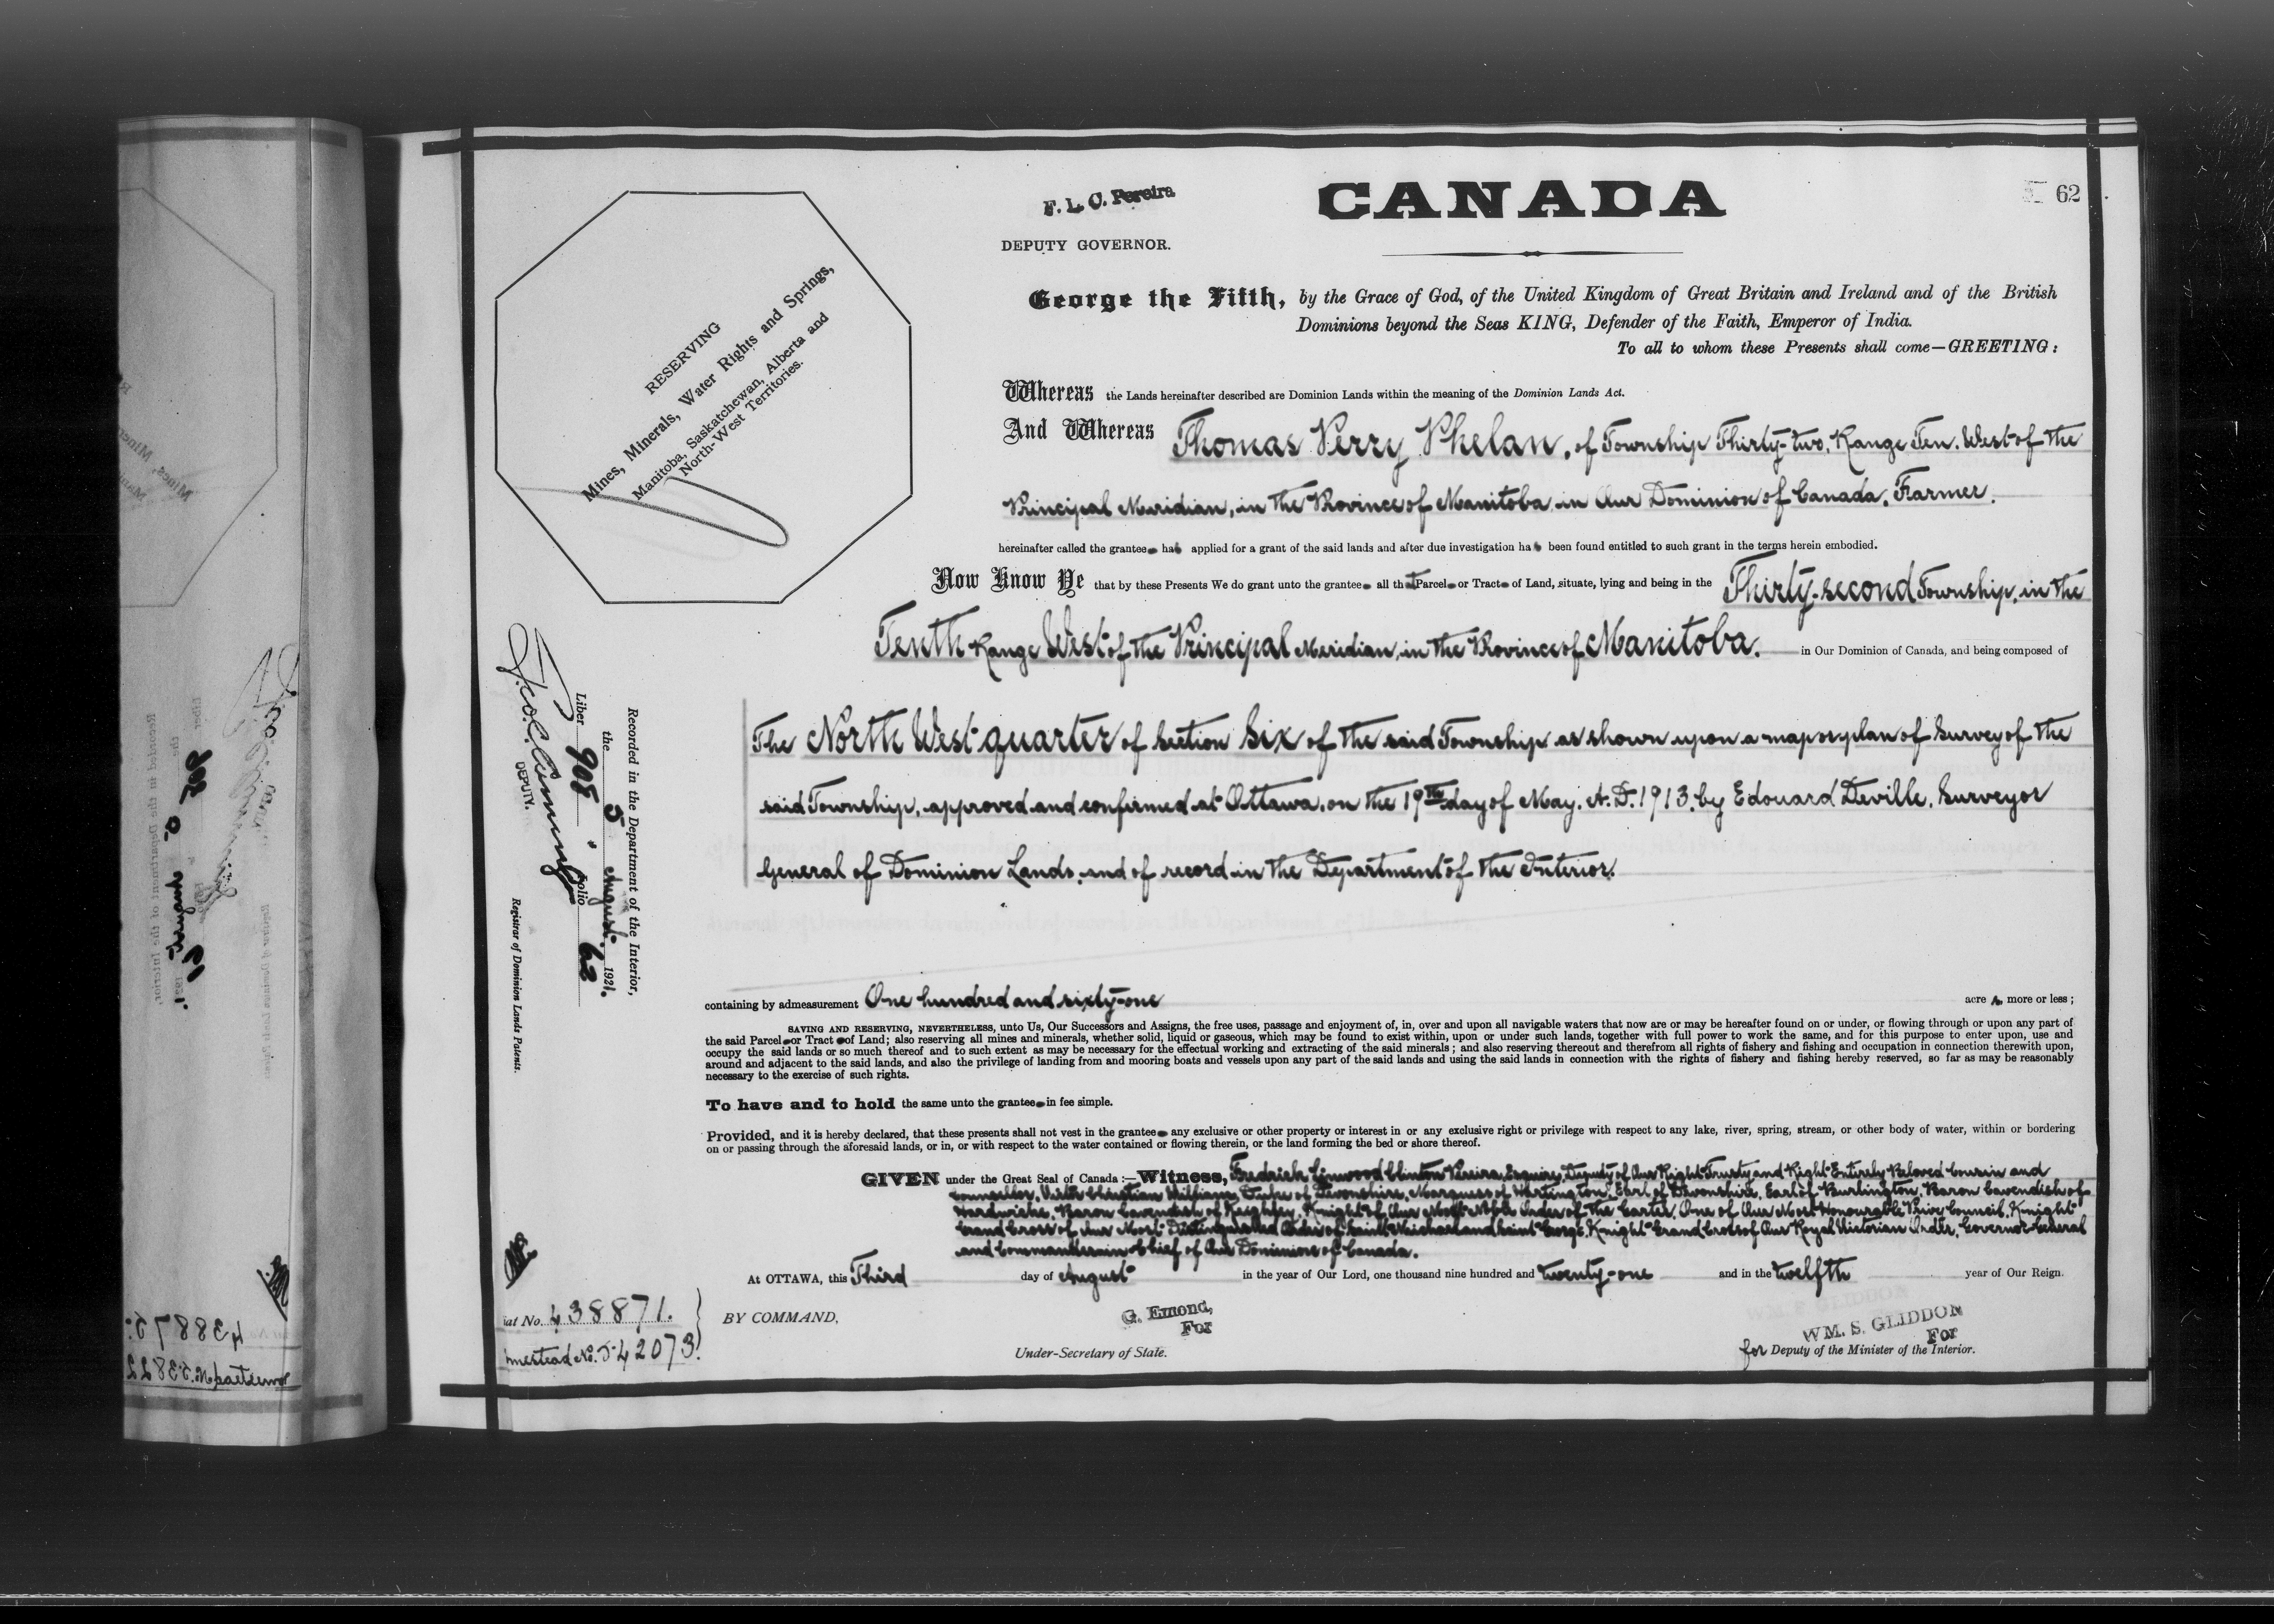 CANADA
62
F. L. C. Pereira
DEPUTY GOVERNOR.
George the Fifth, by the Grace of God, of the United Kingdom of Great Britain and Ireland and of the British
Dominions beyond the Seas KING, Defender of the Faith, Emperor of India.
To all to whom these Presents shall come—GREETING:
RESERVING
Mines, Minerals, Water Rights and Springs,
Manitoba, Saskatchewan, Alberta and
North-West Territories.
Whereas the Lands hereinafter described are Dominion Lands within the meaning of the Dominion Lands Act.
And Whereas Thomas Perry Phelan, of Township Thirty-two, Range Ten, West of the
Principal Meridian, in the Province of Manitoba in Our Dominion of Canada, Farmer.
hereinafter called the grantee has applied for a grant of the said lands and after due investigation has been found entitled to such grant in the terms herein embodied.
Now Know Ye that by these Presents We do grant unto the grantee all that Parcel or Tract of Land, situate, lying and being in the Thirty-second Township, in the
Tenth Range West of the Principal Meridian, in the Province of Manitoba. in Our Dominion of Canada, and being composed of
The North West quarter of Section Six of the said Township as shown upon a map or plan of Survey of the
said Township, approved and confirmed at Ottawa, on the 19th day of May, A.D. 1913, by Edouard Deville, Surveyor
General of Dominion Lands, and of record in the Department of the Interior.
Recorded in the Department of the Interior,
the 5 August 1921.
Liber 908 Folio 62
DEPUTY.
Registrar of Dominion Lands Patents.
containing by admeasurement One hundred and sixty-one acres, more or less;
SAVING AND RESERVING, NEVERTHELESS, unto Us, Our Successors and Assigns, the free uses, passage and enjoyment of, in, over and upon all navigable waters that now are or may be hereafter found on or under, or flowing through or upon any part of
the said Parcel or Tract of Land; also reserving all mines and minerals, whether solid, liquid or gaseous, which may be found to exist within, upon or under such lands, together with full power to work the same, and for this purpose to enter upon, use and
occupy the said lands or so much thereof and to such extent as may be necessary for the effectual working and extracting of the said minerals; and also reserving thereout and therefrom all rights of fishery and fishing and occupation in connection therewith upon,
around and adjacent to the said lands, and also the privilege of landing from and mooring boats and vessels upon any part of the said lands and using the said lands in connection with the rights of fishery and fishing hereby reserved, so far as may be reasonably
necessary to the exercise of such rights.
To have and to hold the same unto the grantee in fee simple.
Provided, and it is hereby declared, that these presents shall not vest in the grantee any exclusive or other property or interest in or any exclusive right or privilege with respect to any lake, river, spring, stream, or other body of water, within or bordering
on or passing through the aforesaid lands, or in, or with respect to the water contained or flowing therein, or the land forming the bed or shore thereof.
GIVEN under the Great Seal of Canada:—Witness, Fredrick Linwood Clinton Pereira, Esquire, Deputy of Our Right Trusty and Right Entirely Beloved Cousin and
Counsellor, Victor Christian William, Duke of Devonshire, Marquess of Hartington, Earl of Devonshire, Earl of Burlington, Baron Cavendish of
Hardwicke, Baron Cavendish of Keighley, Knight of Our Most Noble Order of the Garter, One of Our Most Honourable Privy Council, Knight
Grand Cross of Our Most Distinguished Order of Saint Michael and Saint George, Knight Grand Cross of Our Royal Victorian Order, Governor General
and Commander in Chief of Our Dominion of Canada.
At OTTAWA, this Third day of August in the year of Our Lord, one thousand nine hundred and twenty-one and in the twelfth year of Our Reign.
BY COMMAND,
G. Emond,
For
Under-Secretary of State.
WM. S. GLIDDON
For
for Deputy of the Minister of the Interior.
iat No. 438871.
mestead No. 542073.